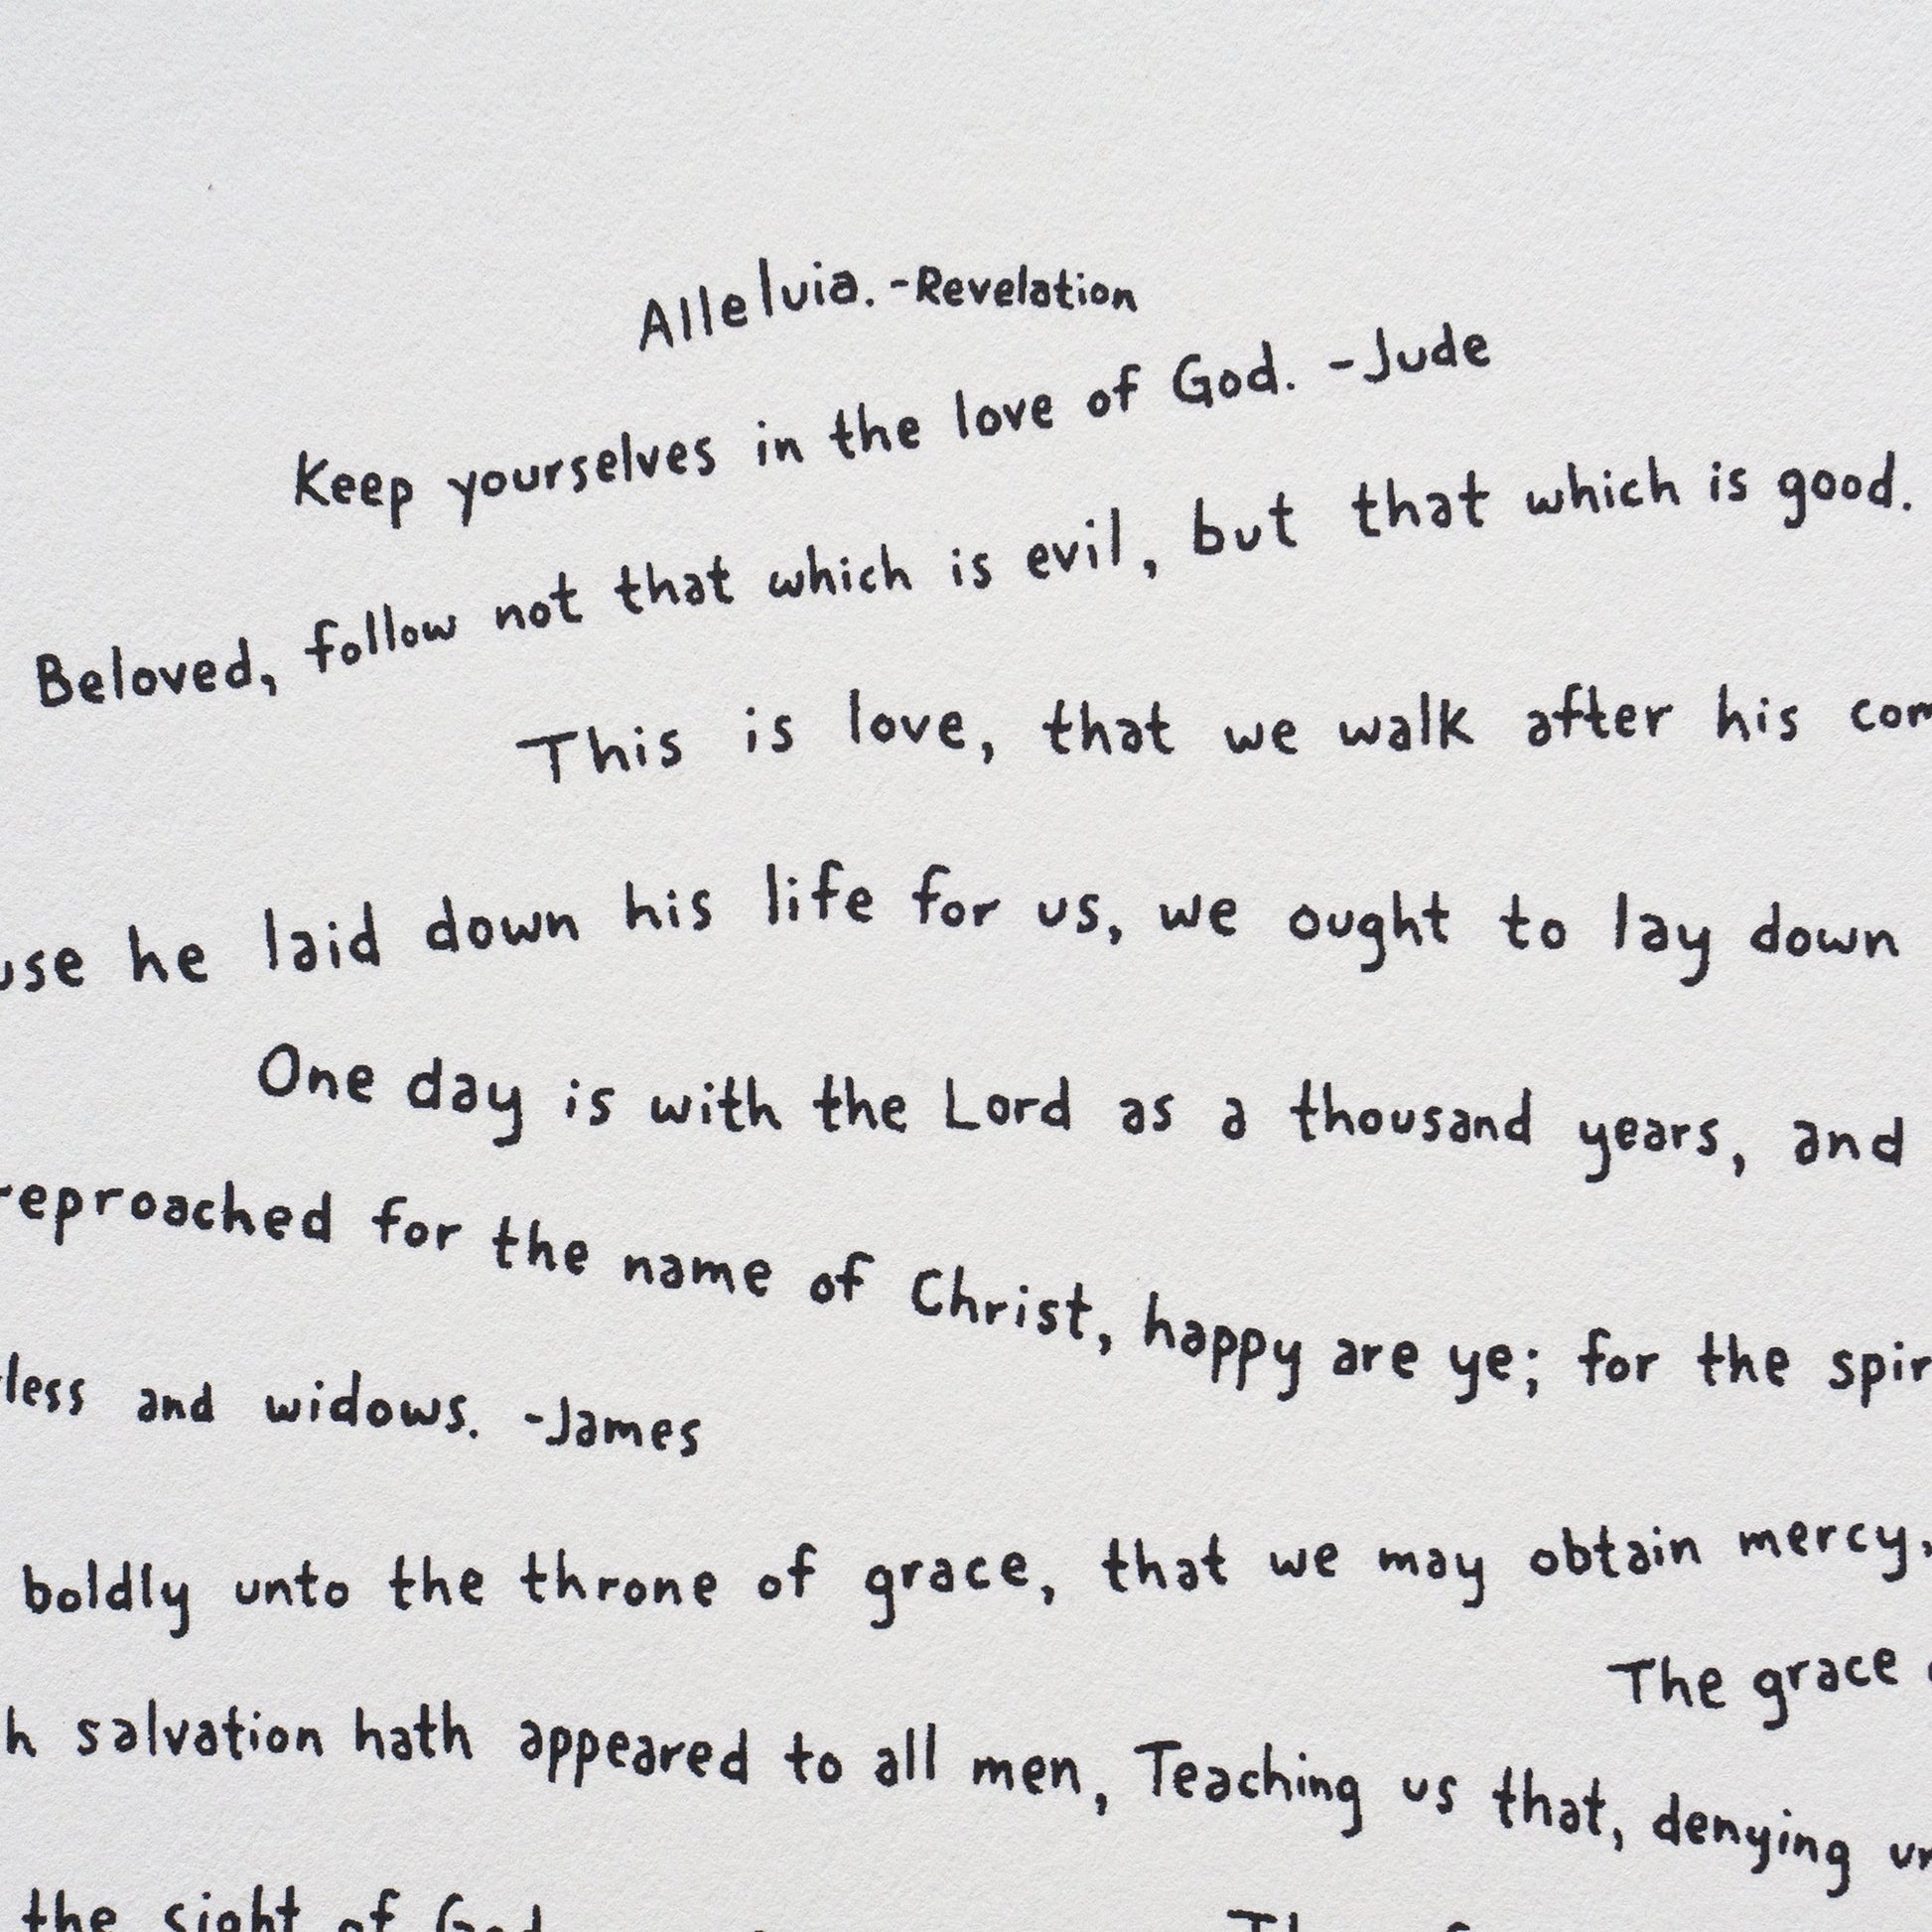 Alleluia. -Revelation
Keep yourselves in the love of God. -Jude
Beloved, follow not that which is evil, but that which is good.
This is love, that we walk after his
he laid down his life for us, we ought to lay down
One day is with the Lord as a thousand years, and
reproached for the name of Christ, happy are ye; for the
and widows. -James
boldly unto the throne of grace, that we may obtain mercy,
The grace
salvation hath appeared to all men, Teaching us that, denying
the sight of God